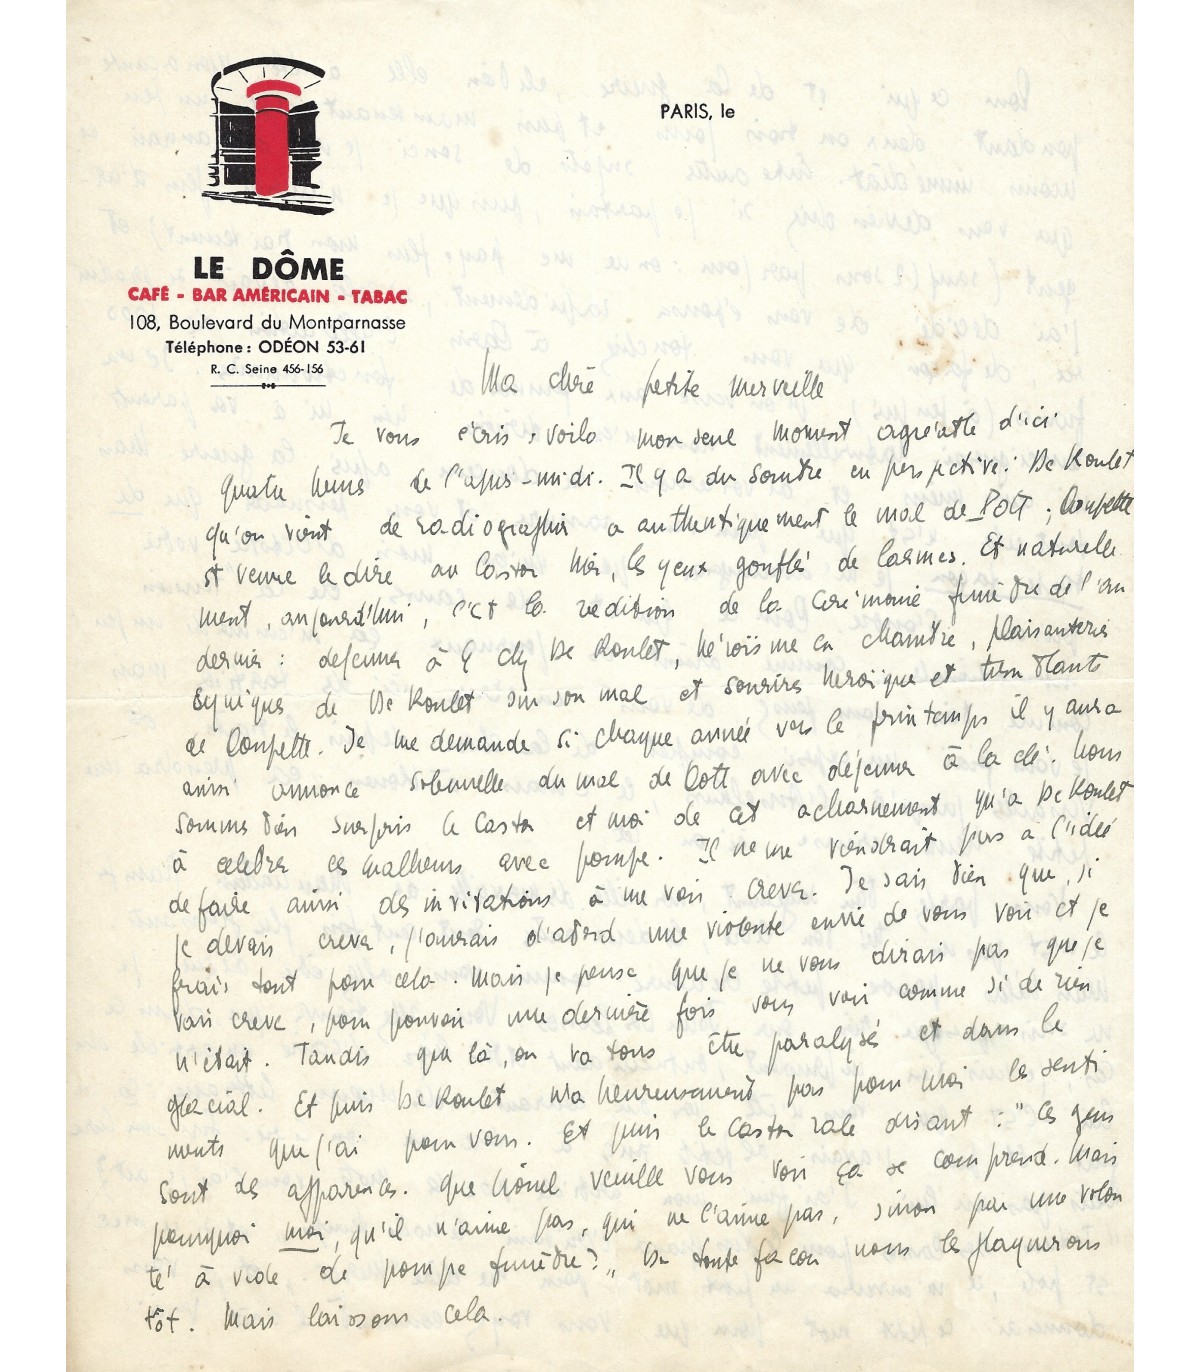 PARIS, le
LE DÔME
CAFÉ - BAR AMÉRICAIN - TABAC
108, Boulevard du Montparnasse
Téléphone : ODÉON 53-61
R. C. Seine 456-156
Ma chère petite merveille
Je vous écris, voilà mon seul moment agréable d'ici
quatre heures de l'après-midi. Il y a du sombre en perspective : De Roulet
qu'on vient de radiographier a authentiquement le mal de Pott ; Poupette
est venue le dire au Castor hier, les yeux gonflés de larmes. Et naturelle
ment, aujourd'hui, c'est la réédition de la cérémonie funèbre de l'an
dernier : déjeuner à 4 chez De Roulet, héroïsme en chambre, plaisanteries
cyniques de De Roulet sur son mal et sourires héroïques et tremblants
de Poupette. Je me demande si chaque année vers le printemps il y aura
ainsi annonce solennelle du mal de Pott avec déjeuner à la clé. Nous
sommes bien surpris le Castor et moi de cet acharnement qu'a De Roulet
à célébrer ces malheurs avec pompe. Il ne me viendrait pas à l'idée
de faire ainsi des invitations à me voir crever. Je sais bien que, si
je devais crever, j'aurais d'abord une violente envie de vous voir et je
ferais tout pour cela. Mais je pense que je ne vous dirais pas que je
vais crever, pour pouvoir une dernière fois vous voir comme si de rien
n'était. Tandis que là, on va tous être paralysés et dans le
glacial. Et puis De Roulet n'a heureusement pas pour moi les senti
ments que j'ai pour vous. Et puis le Castor râle disant : "Ces gens
sont des apparences. Que Lionel veuille vous voir ça se comprend. Mais
pourquoi moi, qu'il n'aime pas, qui ne l'aime pas, sinon par une volon
té à vide de pompe funèbre ?" De toute façon nous les plaquerons
tôt. Mais laissons cela.